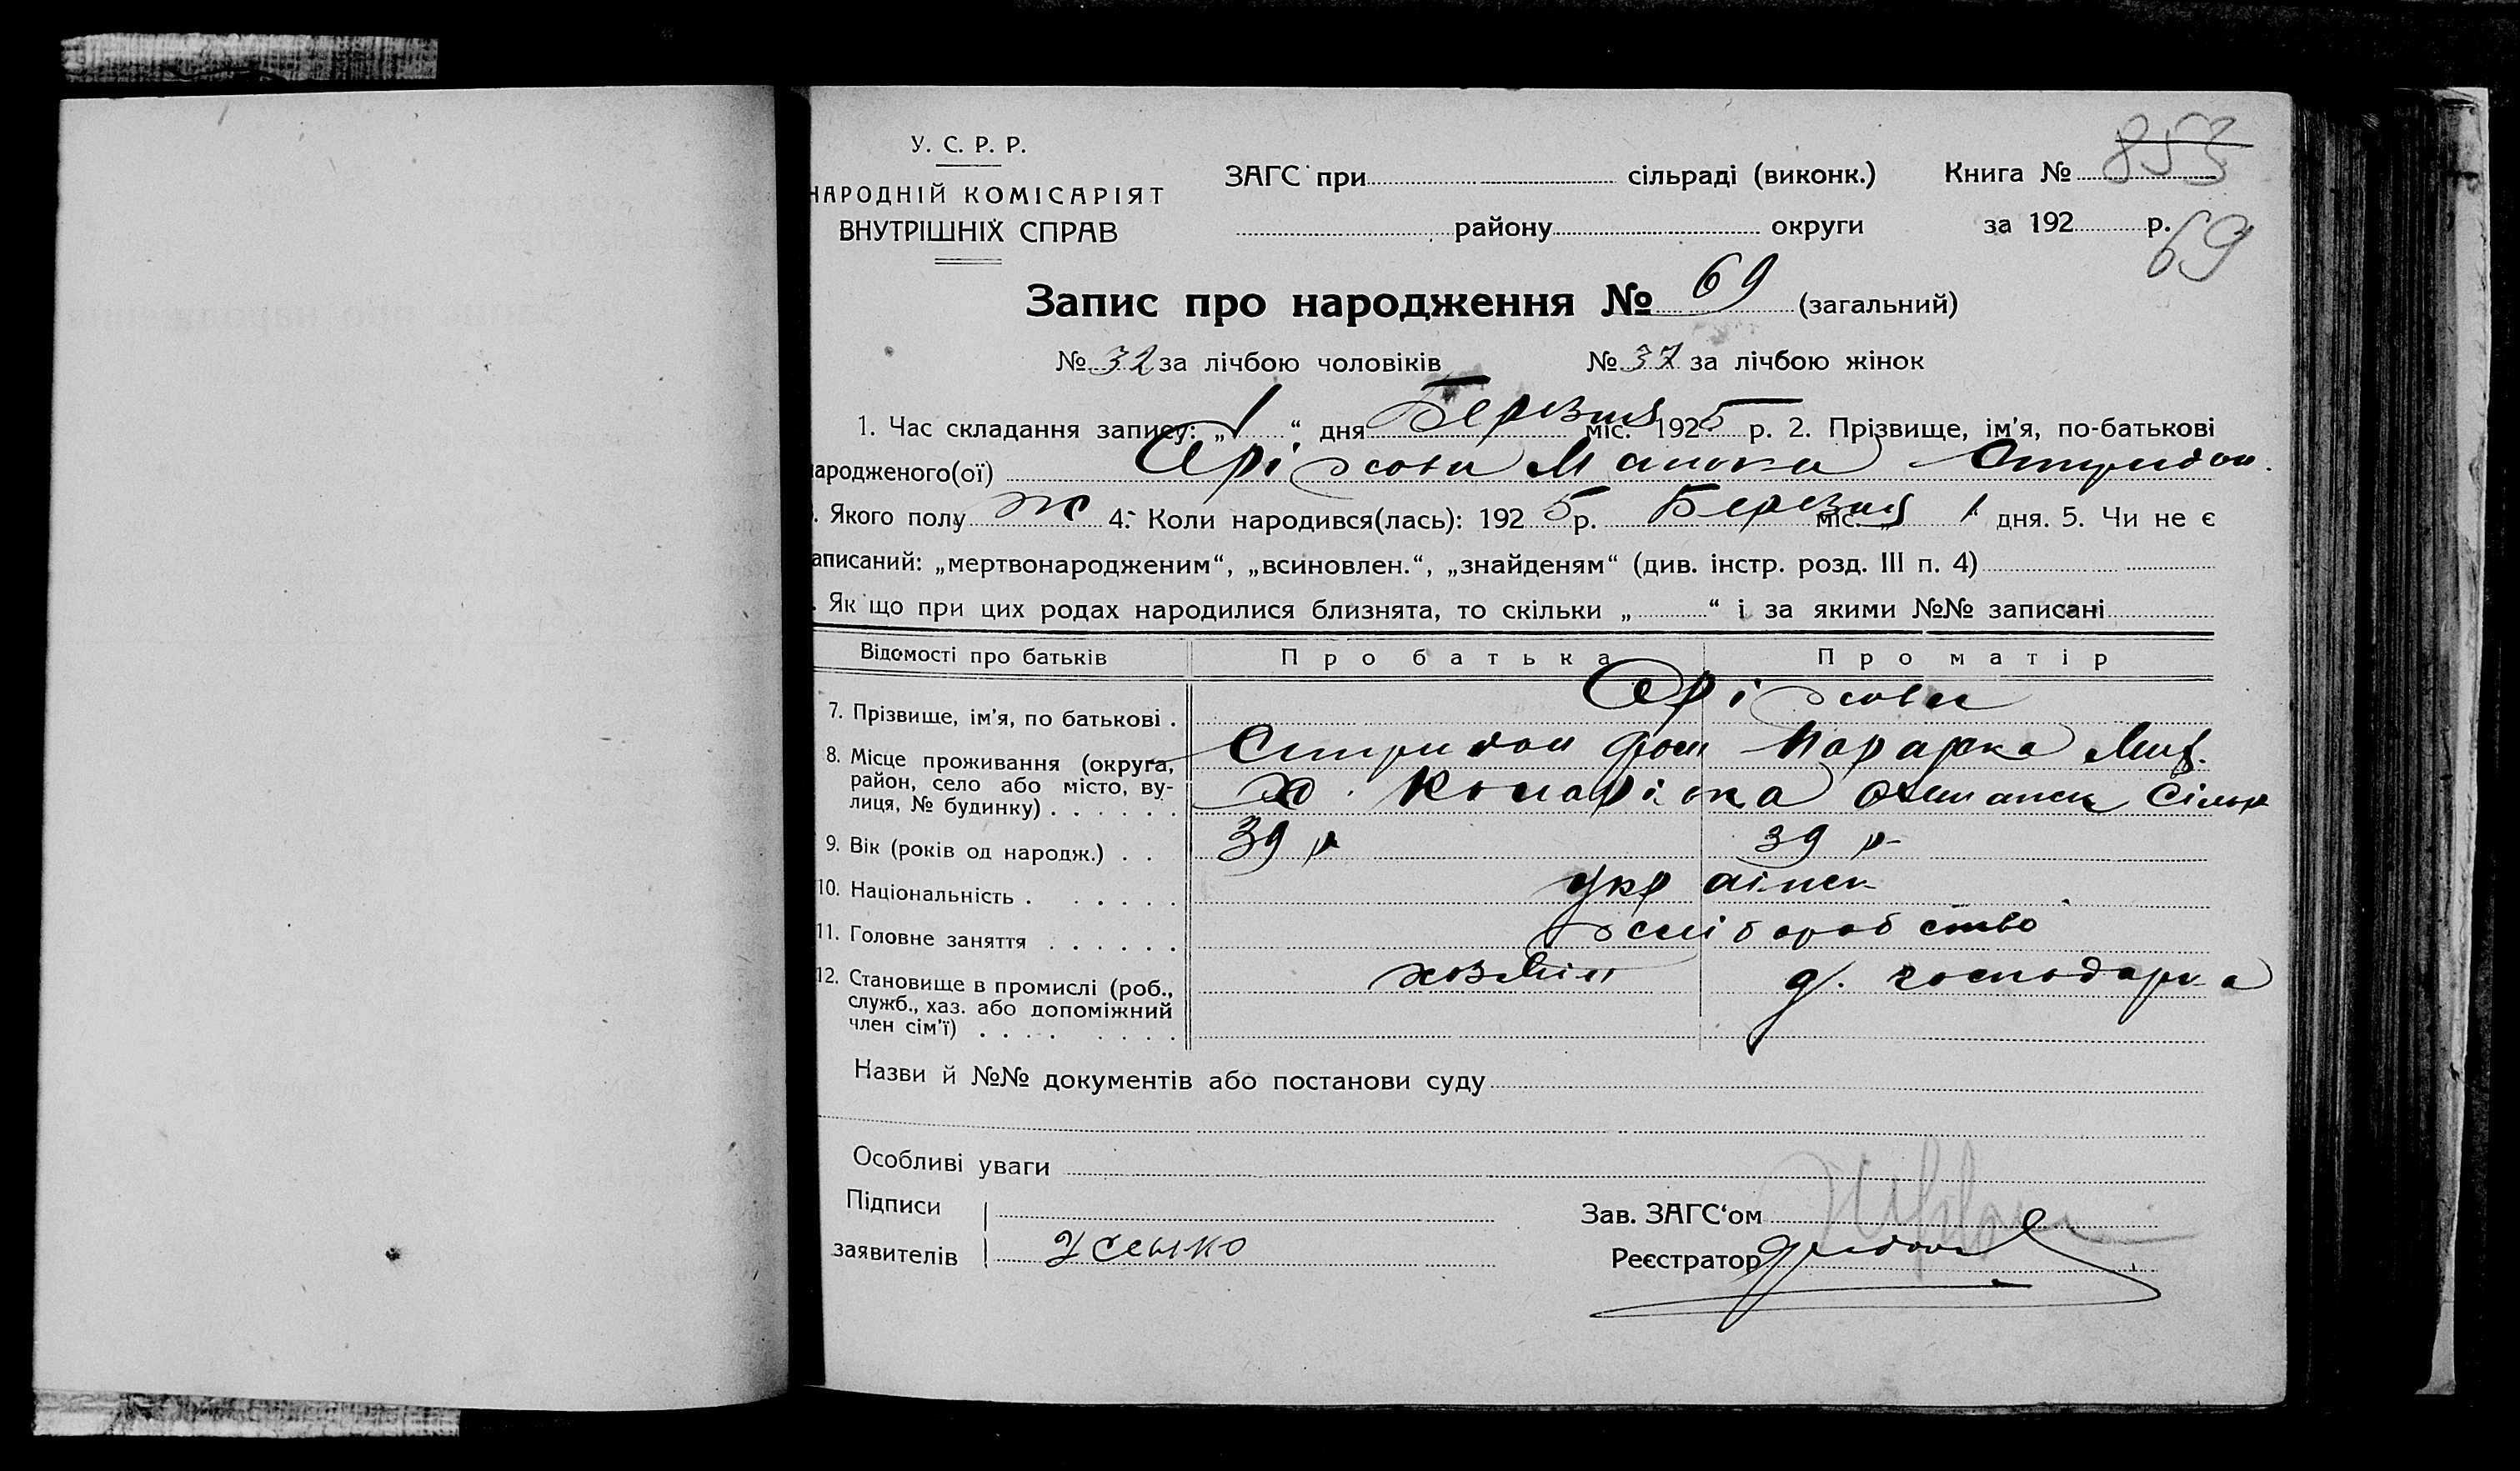 У. С. Р. Р.
НАРОДНІЙ КОМІСАРІЯТ
ВНУТРІШНІХ СПРАВ
ЗАГС при сільраді (виконк.) Книга № 853
району округи за 192 р.
69
Запис про народження № 69 (загальний)
№ 32 за лічбою чоловіків № 37 за лічбою жінок
1. Час складання запису: „ 1 “ дня Березня міс. 1925 р. 2. Прізвище, ім'я, по-батькові
народженого(ої) Спиридон.
. Якого полу ж 4. Коли народився(лась): 1925 р. Березня міс. „ 1 “ дня. 5. Чи не є
записаний: „мертвонародженим“, „всиновлен.“, „знайденям“ (див. інстр. розд. III п. 4)
. Якщо при цих родах народилися близнята, то скільки „ “ і за якими №№ записані
Відомості про батьків Про батька Про матір
7. Прізвище, ім'я, по батькові .
8. Місце проживання (округа, район, село або місто, вулиця, № будинку) . . . . . .
Спиридон Параска
х. Сільр
9. Вік (років од народж.) . . 39 р 39 р
10. Національність . . . . . . українск
11. Головне заняття . . . . . . хліборобство
12. Становище в промислі (роб., служб., хаз. або допоміжний член сім'ї) . . . . . . . . хозяїн д. господарка
Назви й №№ документів або постанови суду
Особливі уваги
Підписи
заявителів
Зав. ЗАГС'ом
Реєстратор